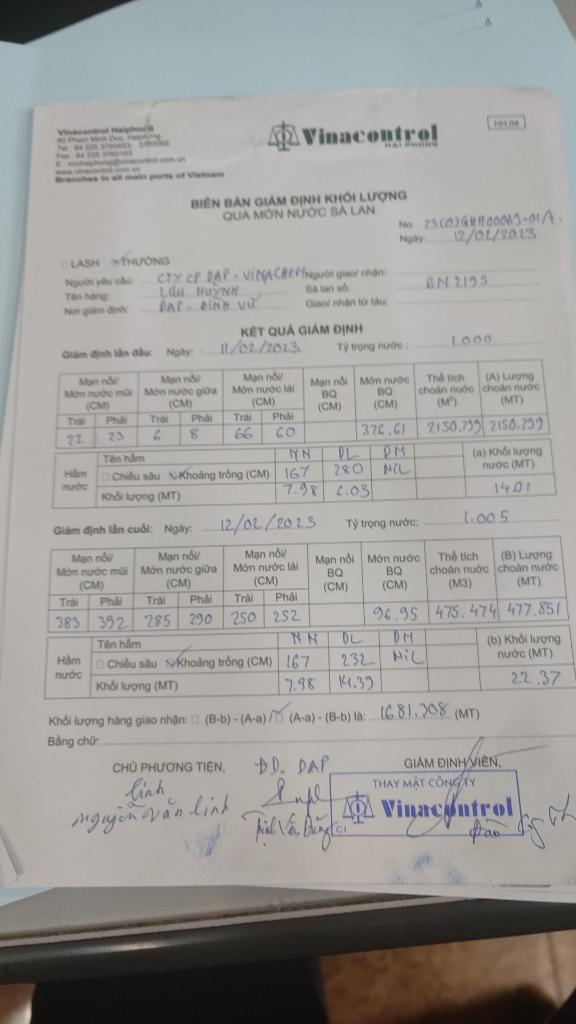 Vinacontrol Haiphong
Branches in all main ports of Vietnam
Vinacontrol
HAI PHONG
HH 04
BIÊN BẢN GIÁM ĐỊNH KHỐI LƯỢNG
QUA MỚN NƯỚC SÀ LAN
No.
Ngày: 12/02/2023
LASH THƯỜNG
Người yêu cầu: CTY CP DAP - VINACHEM Người giao/ nhận:
Tên hàng: LƯU HUỲNH Sà lan số: BM 2195
Nơi giám định: DAP - ĐÌNH VŨ Giao/ nhận từ tàu:
KẾT QUẢ GIÁM ĐỊNH
Giám định lần đầu: Ngày: 11/02/2023 Tỷ trọng nước: 1.000
Mạn nổi/ Mớn nước mũi (CM) Mạn nổi/ Mớn nước giữa (CM) Mạn nổi/ Mớn nước lái (CM) Mạn nổi BQ (CM) Mớn nước BQ (CM) Thể tích choán nước (M³) (A) Lượng choán nước (MT)
Trái Phải Trái Phải Trái Phải
22 23 6 8 66 60 376.61 2150.799 2150.799
Hầm nước Tên hầm NN DL DM (a) Khối lượng nước (MT)
Chiều sâu Khoảng trống (CM) 167 280 NiL
Khối lượng (MT) 7.98 6.03 14.01
Giám định lần cuối: Ngày: 12/02/2023 Tỷ trọng nước: 1.005
Mạn nổi/ Mớn nước mũi (CM) Mạn nổi/ Mớn nước giữa (CM) Mạn nổi/ Mớn nước lái (CM) Mạn nổi BQ (CM) Mớn nước BQ (CM) Thể tích choán nước (M3) (B) Lượng choán nước (MT)
Trái Phải Trái Phải Trái Phải
383 392 285 290 250 252 96.95 475.474 477.851
Hầm nước Tên hầm NN DL DM (b) Khối lượng nước (MT)
Chiều sâu Khoảng trống (CM) 167 232 NiL
Khối lượng (MT) 7.98 14.39 22.37
Khối lượng hàng giao nhận: (B-b) - (A-a) / (A-a) - (B-b) là: 1681.308 (MT)
Bằng chữ:
CHỦ PHƯƠNG TIỆN, ĐD. DAP GIÁM ĐỊNH VIÊN,
THAY MẶT CÔNG TY
Vinacontrol
Linh
Nguyễn Văn Linh